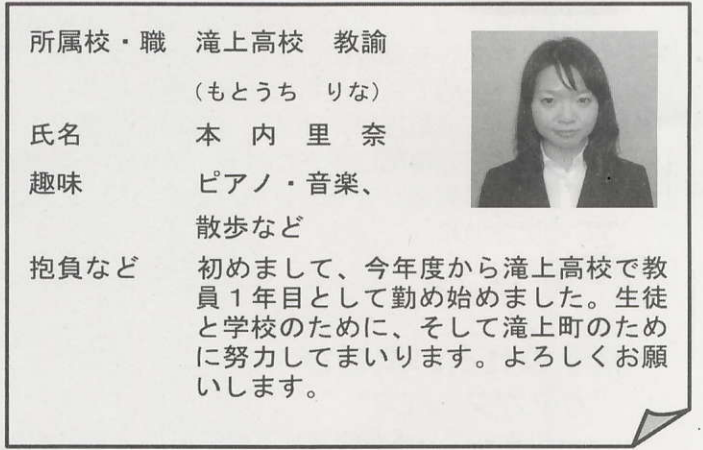 所属校・職　滝上高校　教諭
（もとうち　りな）
氏名　本　内　里　奈
趣味　ピアノ・音楽、
散歩など
抱負など　初めまして、今年度から滝上高校で教
員１年目として勤め始めました。生徒
と学校のために、そして滝上町のため
に努力してまいります。よろしくお願
いします。